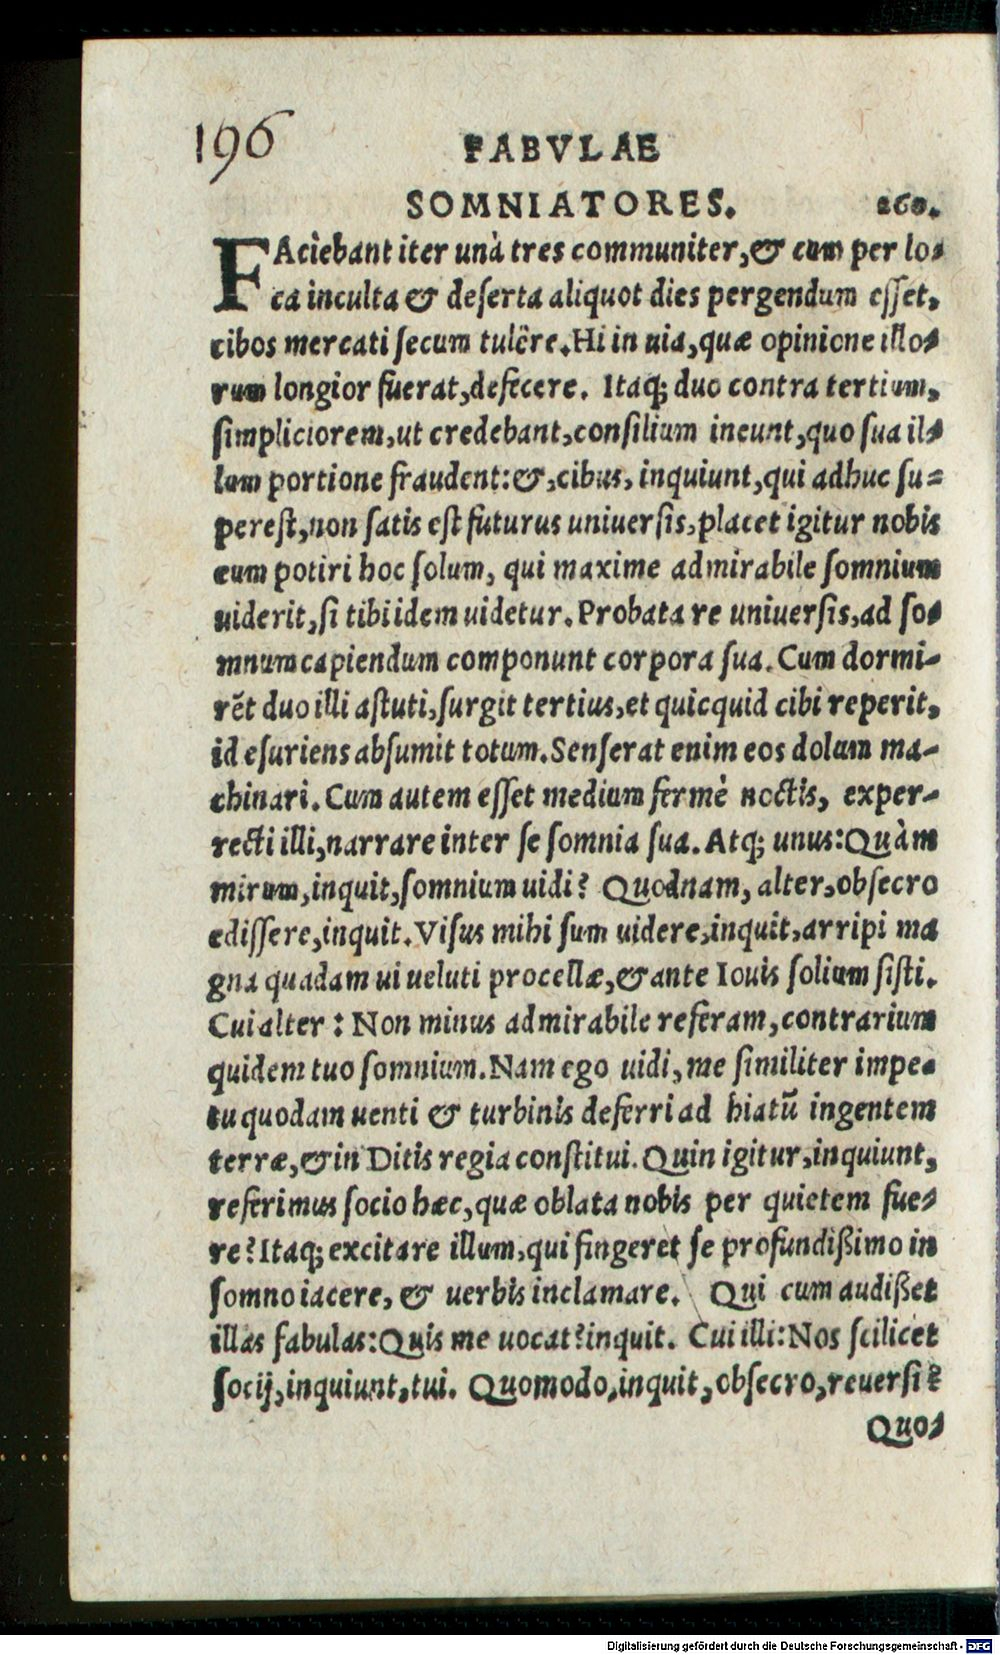 196
FABVLAE
SOMNIATORES. 260.
FAciebant iter unà tres communiter, & cum per lo-
ca inculta & deserta aliquot dies pergendum esset,
cibos mercati secum tulêre. Hi in uia, quæ opinione illo-
rum longior fuerat, defecere. Itaq; duo contra tertium,
simpliciorem, ut credebant, consilium ineunt, quo sua il-
lum portione fraudent: &, cibus, inquiunt, qui adhuc su-
perest, non satis est futurus uniuersis, placet igitur nobis
eum potiri hoc solum, qui maxime admirabile somnium
uiderit, si tibi idem uidetur. Probata re uniuersis, ad so-
mnum capiendum componunt corpora sua. Cum dormi-
rẽt duo illi astuti, surgit tertius, et quicquid cibi reperit,
id esuriens absumit totum. Senserat enim eos dolum ma-
chinari. Cum autem esset medium fermè noctis, exper-
recti illi, narrare inter se somnia sua. Atq; unus: Quàm
mirum, inquit, somnium uidi? Quodnam, alter, obsecro
edissere, inquit. Visus mihi sum uidere, inquit, arripi ma
gna quadam ui ueluti procellæ, & ante Iouis solium sisti.
Cui alter: Non minus admirabile referam, contrarium
quidem tuo somnium. Nam ego uidi, me similiter impe-
tu quodam uenti & turbinis deferri ad hiatũ ingentem
terræ, & in Ditis regia constitui. Quin igitur, inquiunt,
referimus socio hæc, quæ oblata nobis per quietem fue-
re? Itaq; excitare illum, qui fingeret se profundißimo in
somno iacere, & uerbis inclamare. Qui cum audißet
illas fabulas: Quis me uocat? inquit. Cui illi: Nos scilicet
socij, inquiunt, tui. Quomodo, inquit, obsecro, reuersi?
Quo-
Digitalisierung gefördert durch die Deutsche Forschungsgemeinschaft - DFG